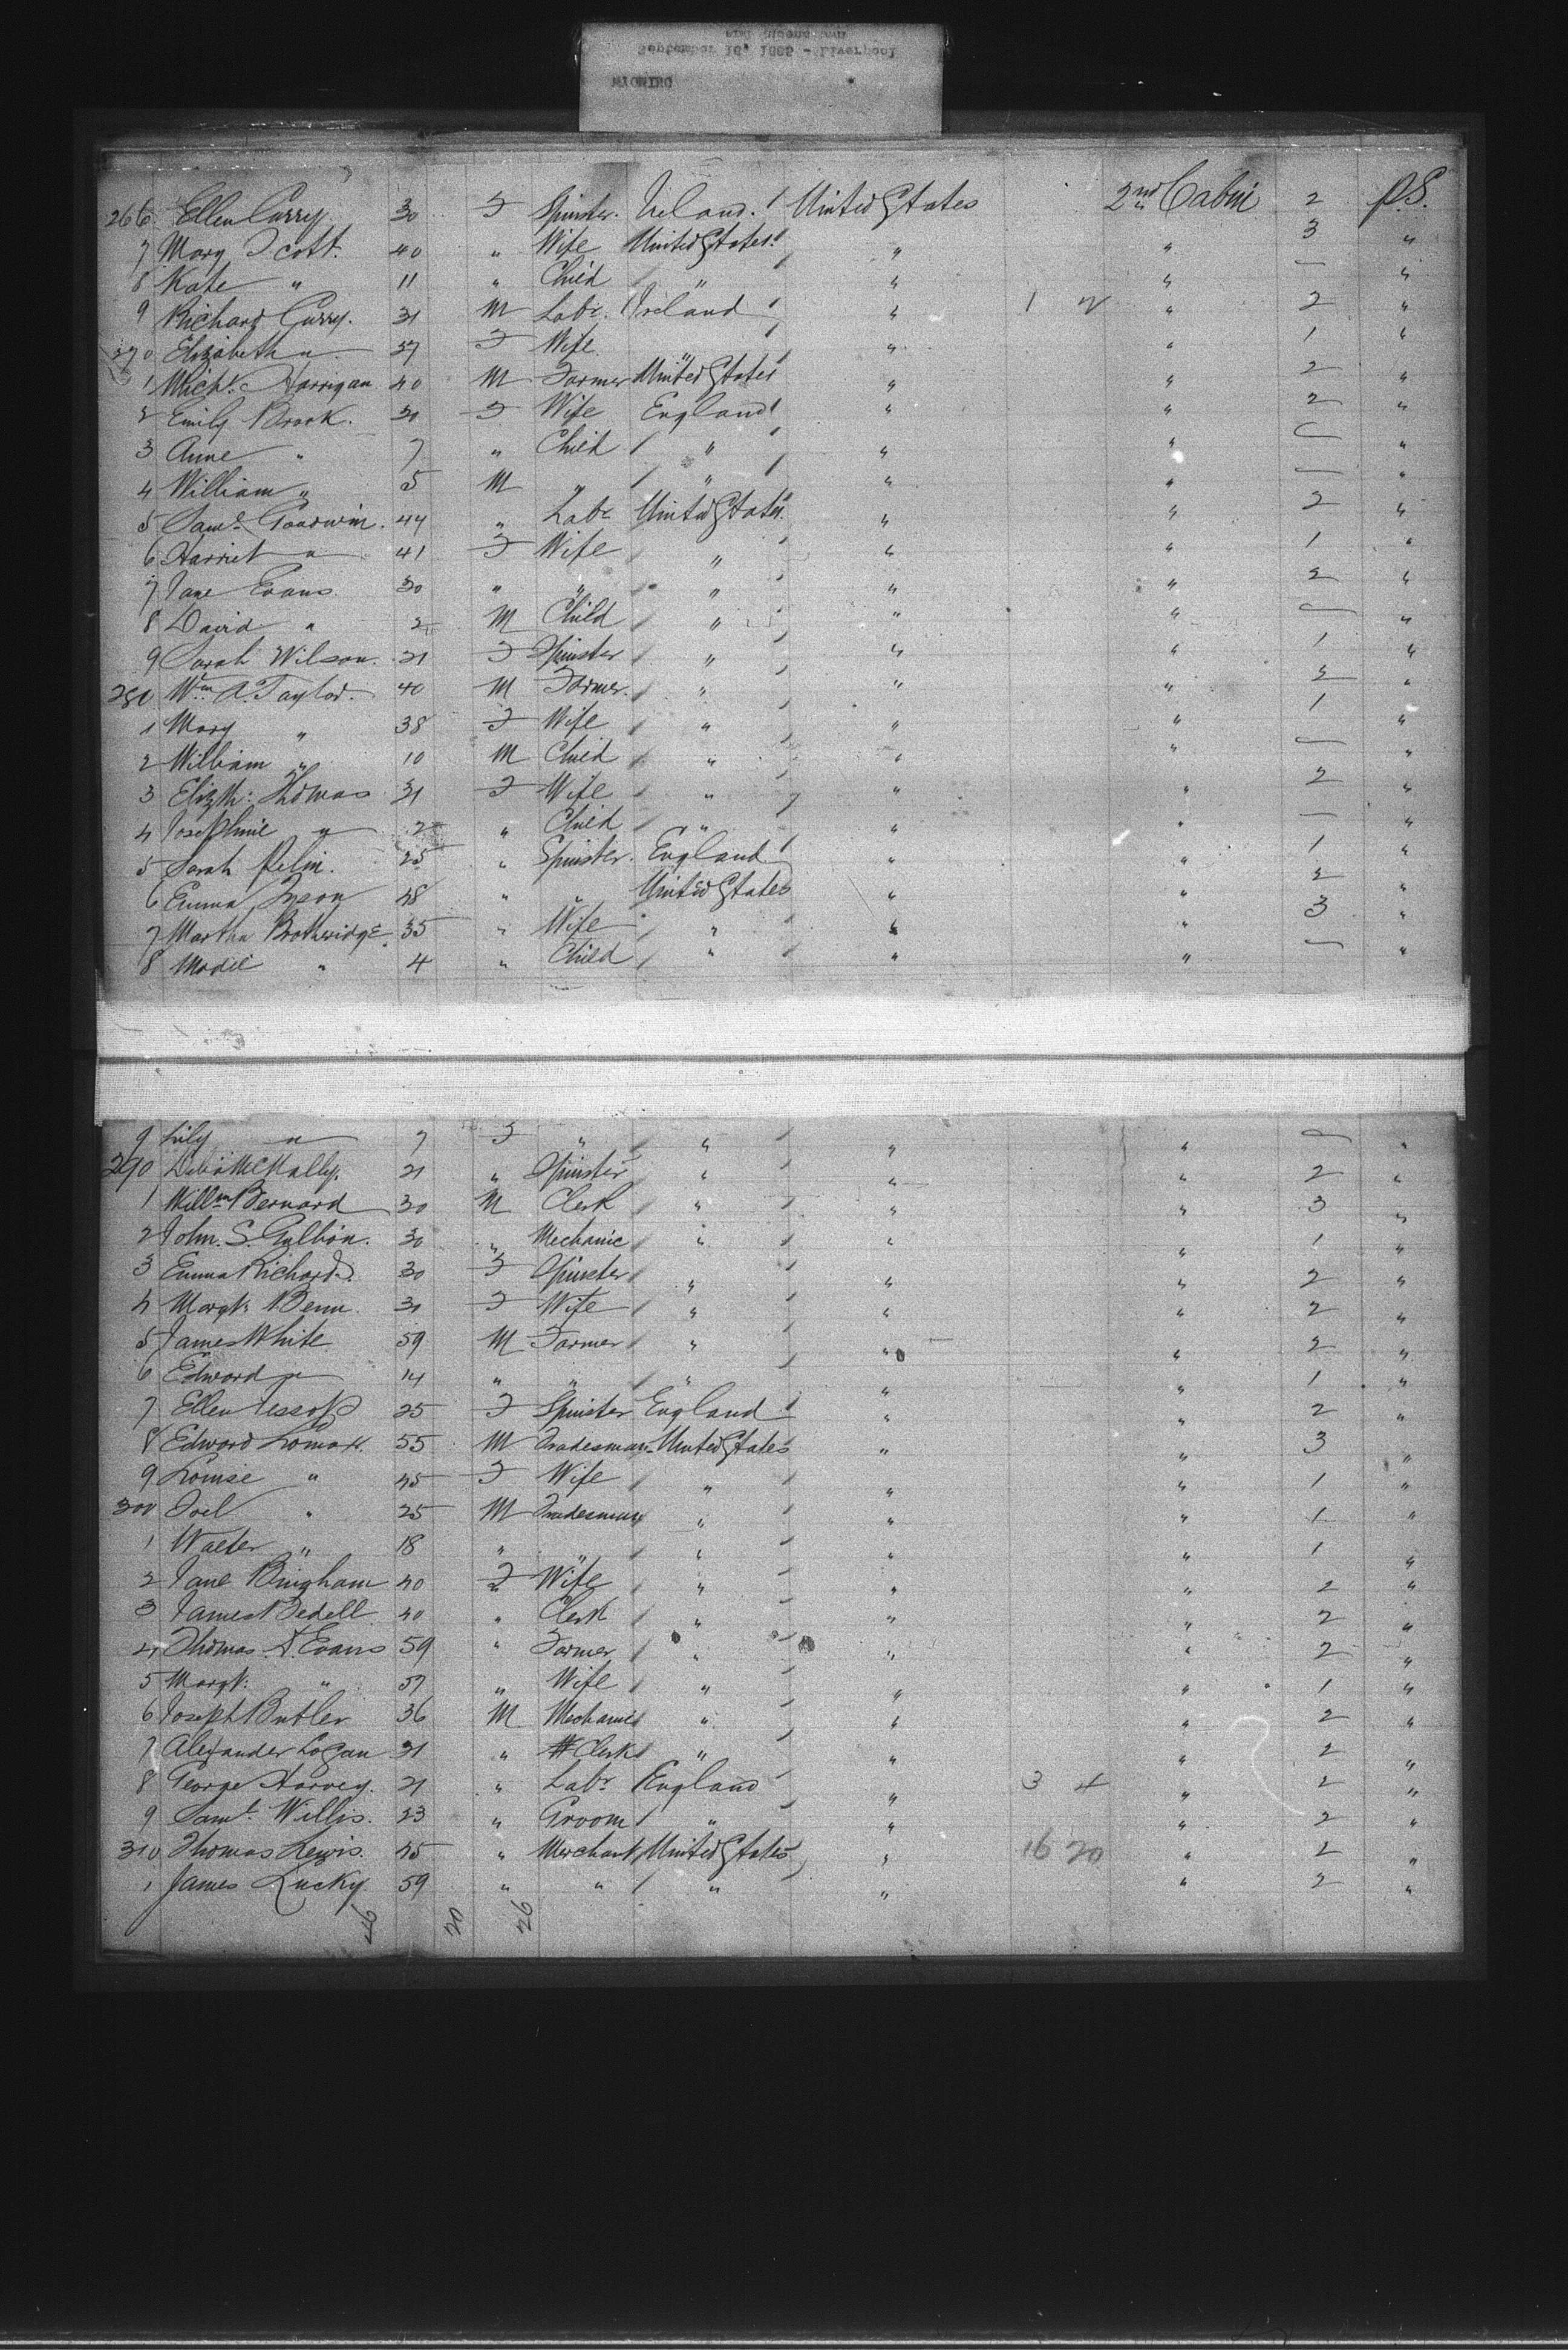 WYOMING
September 16, 1885 - Liverpool
and Queenstown
266 Ellen Curry. 30 F Spinster. Ireland. United States 2nd Cabin 2 P.S.
7 Mary Scott. 40 " Wife United States " " 3 "
8 Kate " 11 " Child " " " — "
9 Richard Curry. 31 M Labr. Ireland " 1 2 " 2 "
270 Elizabeth " 27 F Wife " " " 1 "
1 Michl. Harrigan 40 M Farmer United States " " 2 "
2 Emily Brook. 30 F Wife England " " 2 "
3 Anne " 7 " Child " " " — "
4 William " 5 M " " " " — "
5 Saml. Goodwin. 44 " Labr United States " " 2 "
6 Harriet " 41 F Wife " " " 1 "
7 Jane Evans. 30 " " " " " 2 "
8 David " 2 M Child " " " — "
9 Sarah Wilson. 21 F Spinster " " " 1 "
280 Wm A. Taylor. 40 M Farmer. " " " 2 "
1 Mary " 38 F Wife " " " 1 "
2 William " 10 M Child " " " — "
3 Elizth: Thomas 31 F Wife " " " 2 "
4 Josephine " 2 " Child " " " — "
5 Sarah 25 " Spinster. England " " 1 "
6 Emma 48 " " United States " " 2 "
7 Martha Brotheridge. 35 " Wife " " " 3 "
8 " 4 " Child " " " — "
9 Lily " 7 F " " " " — "
290 McNally. 21 " Spinster " " " 2 "
1 Willm Bernard 30 M Clerk " " " 3 "
2 John. S. 30 " Mechanic " " " 1 "
3 Emma Richards. 30 F Spinster " " " 2 "
4 Margt. Benn. 31 F Wife " " " 2 "
5 James White 59 M Farmer " " " 2 "
6 Edward " 14 " " " " " 1 "
7 Ellen Jessop 25 F Spinster England " " 2 "
8 Edward Lomax. 55 M Tradesman United States " " 3 "
9 Louise " 45 F Wife " " " 1 "
300 Joel " 25 M Tradesman " " " 1 "
1 Walter " 18 " " " " " 1 "
2 Jane Bingham 40 F Wife " " " 2 "
3 James Bedell 40 " Clerk " " " 2 "
4 Thomas Evans 59 " Farmer " " " 2 "
5 Margt: " 57 " Wife " " " 1 "
6 Joseph Butler 36 M Mechanic " " " 2 "
7 Alexander Logan 31 " Clerk " " " 2 "
8 George Harvey. 21 " Labr England " 3 4 " 2 "
9 Saml. Willis. 23 " Groom " " " 2 "
310 Thomas Lewis. 45 " Merchant United States " 16 20 " 2 "
1 James Lucky. 59 " " " " " 2 "
46 20 26